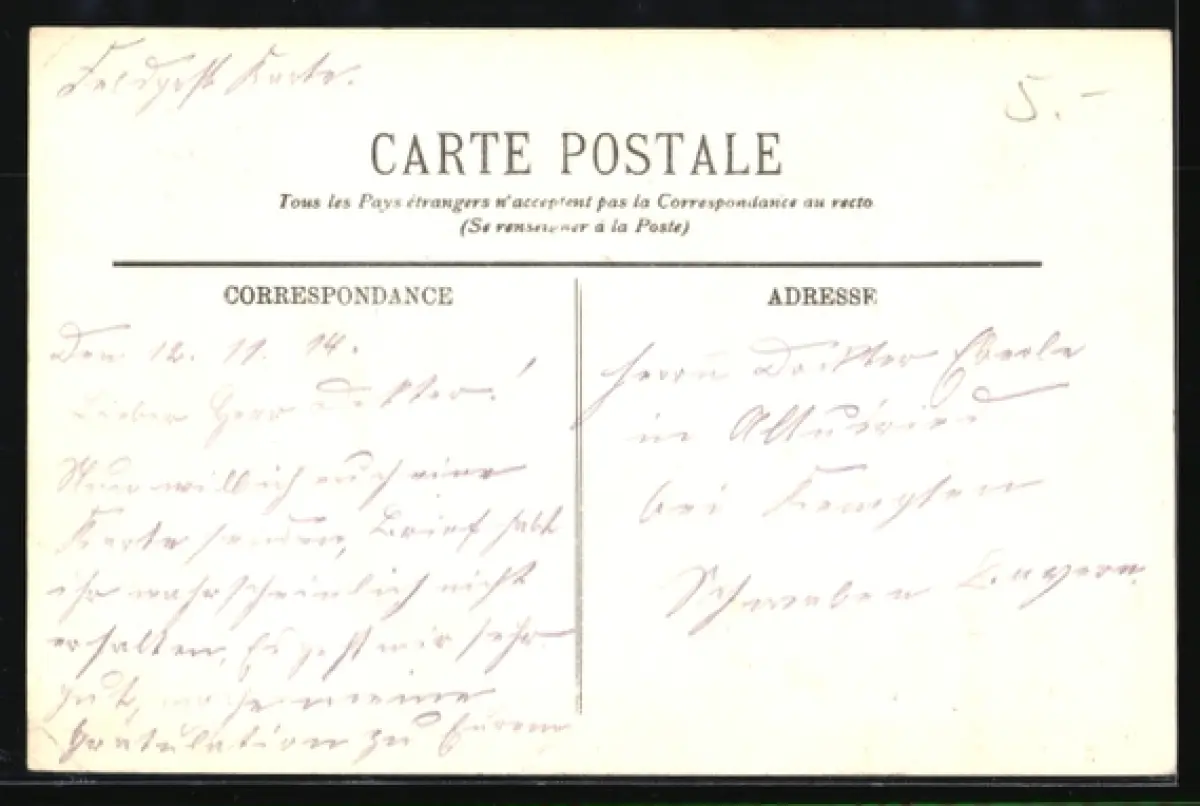 Feldpost Karte.
5.-
CARTE POSTALE
Tous les Pays étrangers n'acceptent pas la Correspondance au recto
(Se renseigner à la Poste)
CORRESPONDANCE
Den 12. 11. 14.
Lieber Herr Dokter!
Nun will ich euch eine
Karte senden, Brief habt
ihr wahrscheinlich nicht
erhalten, Es geht mir sehr
gut, meine
Gratulation zu Eurem
ADRESSE
Herrn Dockter Eberle
in Altusried
bei Kempten
Schwaben Bayern